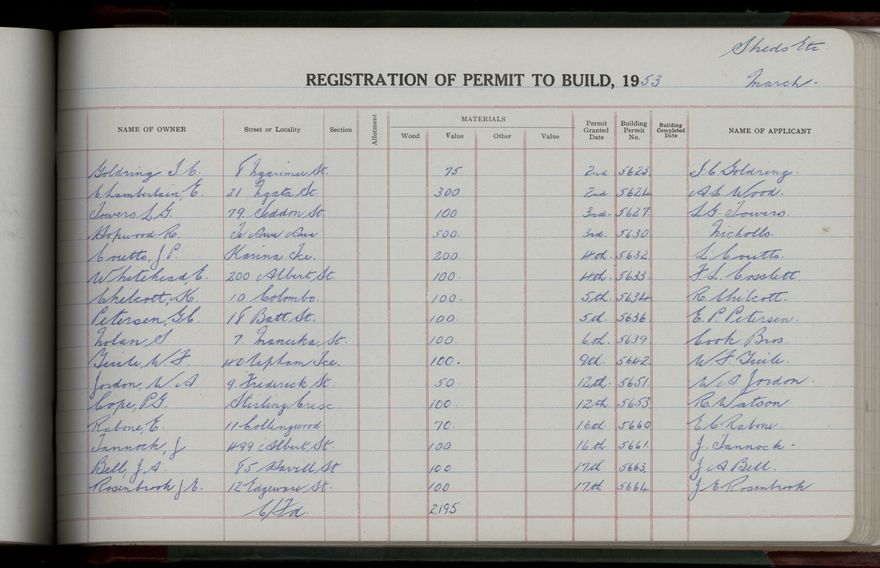 Sheds Etc.
REGISTRATION OF PERMIT TO BUILD, 1953 March.
NAME OF OWNER Street or Locality Section Allotment MATERIALS Wood Value Other Value Permit Granted Date Building Permit No. Building Completed Date NAME OF APPLICANT
Goldring I. C. 8 Ngarimu St. 75 2nd 5623 I. C. Goldring.
Chamberlain, E. 21 Ngata St. 300 2nd 5624 A. C. Wood.
Towers L G. 79 Seddon St. 100 3rd. 5627 L G. Towers.
Hopwood R. Te Awe Awe 500. 3rd. 5630 Nicholls.
Coutts, J P. Karina Tce. 200. 4th. 5632 L. Coutts.
Whitehead, E. 200 Albert St. 100. 4th. 5633. F. L. Cosslett.
Chilcott, K. 10 Colombo. 100. 5th. 5634 R. Chilcott.
Petersen, G C. 18 Batt St. 100 5th. 5636 E. P. Petersen.
Nolan S. 7. Manuka St. 100 6th. 5639 Cook Bros.
Tuite, W F 40 Upham Tce. 100. 9th. 5642. W. F. Tuite.
Jordon, W. A 9 Frederick St. 50 12th. 5651. W A Jordon.
Cope, P. G. Stirling Cresc 100 12th. 5653 R. Watson
Rabone, E. 11 Collingwood 70. 16th. 5660 E C Rabone.
Tannock, J 499 Albert St. 100 16th. 5661. J. Tannock.
Bell, J. A. 85 Savill St 100 17th. 5663. J A Bell.
Rosenbrook J E. 12 Edgeware St. 100 17th 5664. J E Rosenbrook
C/Fd. 2195